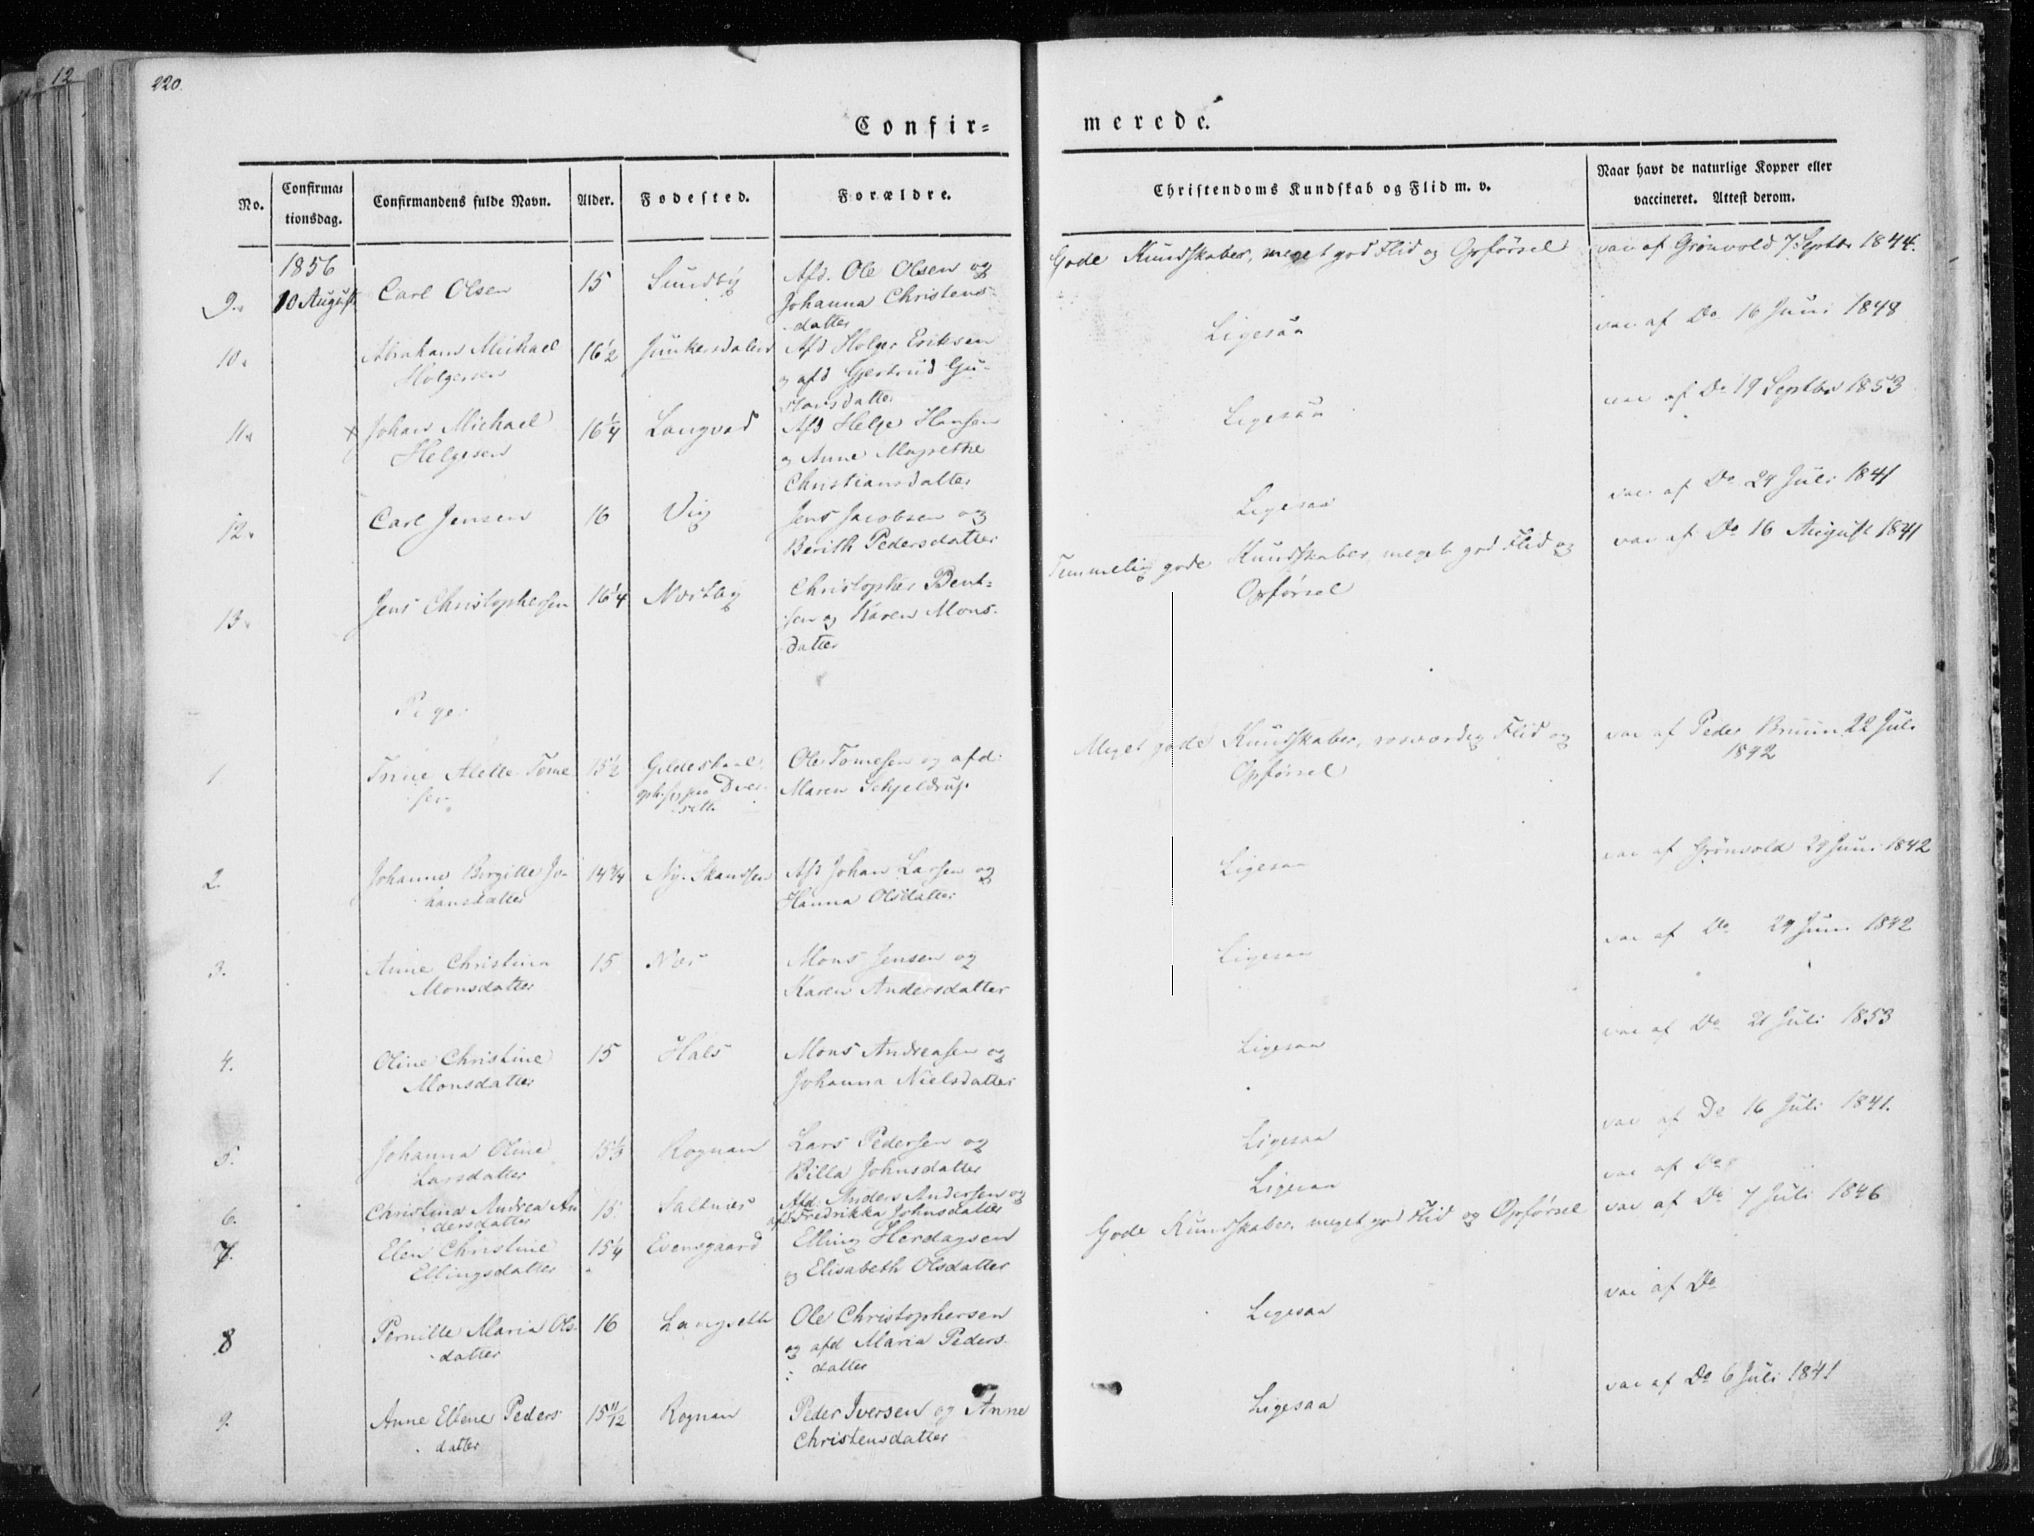 12
220.
Confir=
merede.
No.
Confirma=
tionsdag.
Confirmandens fulde Navn.
Alder.
Fodested.
Forældre.
Christendoms Kundskab og Flid m. v.
Naar havt de naturlige Kopper eller
vaccineret. Attest derom.
1856
9. 10 August Carl Olsen 15 Sundby Afd. Ole Olsen og
Johanna Christens-
datter
Gode Kundskaber, meget god Flid og Opførsel
vac af Grönvold 7 Septbr 1844.
10. Abraham Michael 16½ Junkersdalen Afd Holger Eriksen
Holgersen og afd Gjertrud Gu-
stavsdatter
Ligesaa
vac af Do 16 Juni 1848
11. x Johan Michael 16¼ Langvad Afd Helge Hansen
Helgesen og Anne Magrethe
Christiansdatter
Ligesaa
vac af Do 19 Septbr 1853
12. Carl Jensen 16 Vig Jens Jacobsen og
Berith Pedersdatter
Ligesaa
vac af Do 24 Juli 1841
13. Jens Christophersen 16¼ Næstby Christopher Bent=
sen og Karen Mons-
datter
Temmelig gode Kundskaber, meget god Flid og
Opførsel
vac af Do 16 August 1841
Piger
1. Trine Alette Tome 15½ Gildeskaal
sen Ole Tomesen og afd.
Maren Schjeldrup
Meget gode Kundskaber, rosværdig Flid og
Opførsel
vac af Peder Bruun 22 Juli
1842
2. Johanne Birgitte Jo- 14¾ Ny-Skandsen Afd Johan Larsen og
hansdatter Hanna Olsdatter
Ligesaa
vac af Grönvold 29 Juni 1842
3. Anne Christina 15 Næs Mons Jensen og
Monsdatter Karen Andersdatter
Ligesaa
vac af Do 29 Juni 1842
4. Oline Christine 15 Hals Mons Andreasen og
Monsdatter Johanna Nielsdatter
Ligesaa
vac af Do 21 Juli 1853
5. Johanna Oline 15⅓ Rognan Lars Pedersen og
Larsdatter Billa Johnsdatter
Ligesaa
vac af Do 16 Juli 1841.
6. Christina Andrea An 15 Saltnæs Afd. Anders Andersen og
dersdatter afd Fredrikka Johnsdatter
Ligesaa
vac af Do
7. Elen Christine 15¼ Evensgaard Elling Herdagsen
Ellingsdatter og Elisabeth Olsdatter
Gode Kundskaber, meget god Flid og Opførsel
vac af Do 7 Juli 1846
8 Pernille Maria Ols- 16 Langsetti Ole Christophersen
datter og afd Maria Peders-
datter
Ligesaa
vac af Do
9. Anne Ellene Peders 15 11/12 Rognan Peder Iversen og Anne
datter Christensdatter
Ligesaa
vac af Do 6 Juli 1841